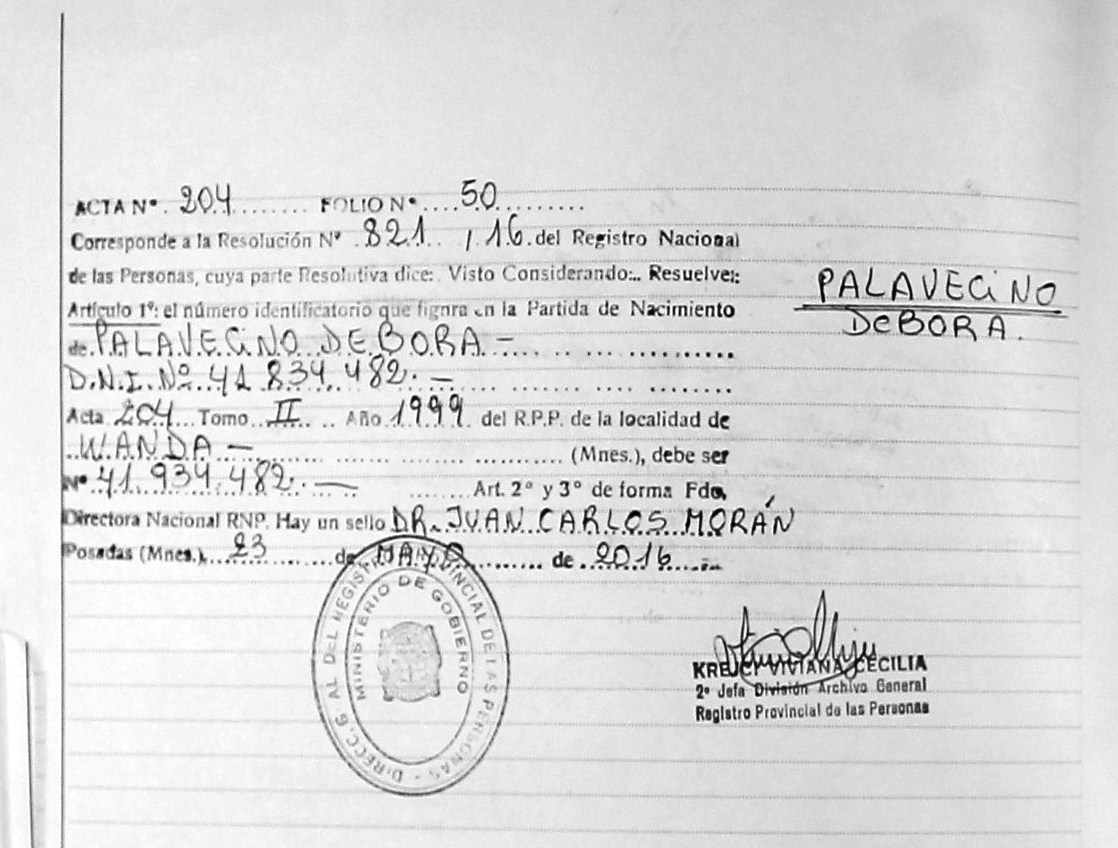 ACTA N° 204 FOLIO N° 50
Corresponde a la Resolución N° 821 / 16 del Registro Nacional
de las Personas, cuya parte Resolutiva dice: Visto Considerando:.. Resuelve:
Artículo 1°: el número identificatorio que fignra en la Partida de Nacimiento
de PALAVECINO DEBORA -
D.N.I. Nº 41 834 482. -
Acta 204 Tomo II Año 1999 del R.P.P. de la localidad de
WANDA - (Mnes.), debe ser
N° 41.934.482. - Art. 2° y 3° de forma Fdo.
Directora Nacional RNP. Hay un sello DR. JUAN CARLOS MORÁN
Posadas (Mnes.), 23 de MAYO de 2016
PALAVECINO
DEBORA.
DIRECC. G AL DEL REGISTRO PROVINCIAL DE LAS PERSONAS
MINISTERIO DE GOBIERNO
VIVIANA CECILIA
2° Jefa División Archivo General
Registro Provincial de las Personas